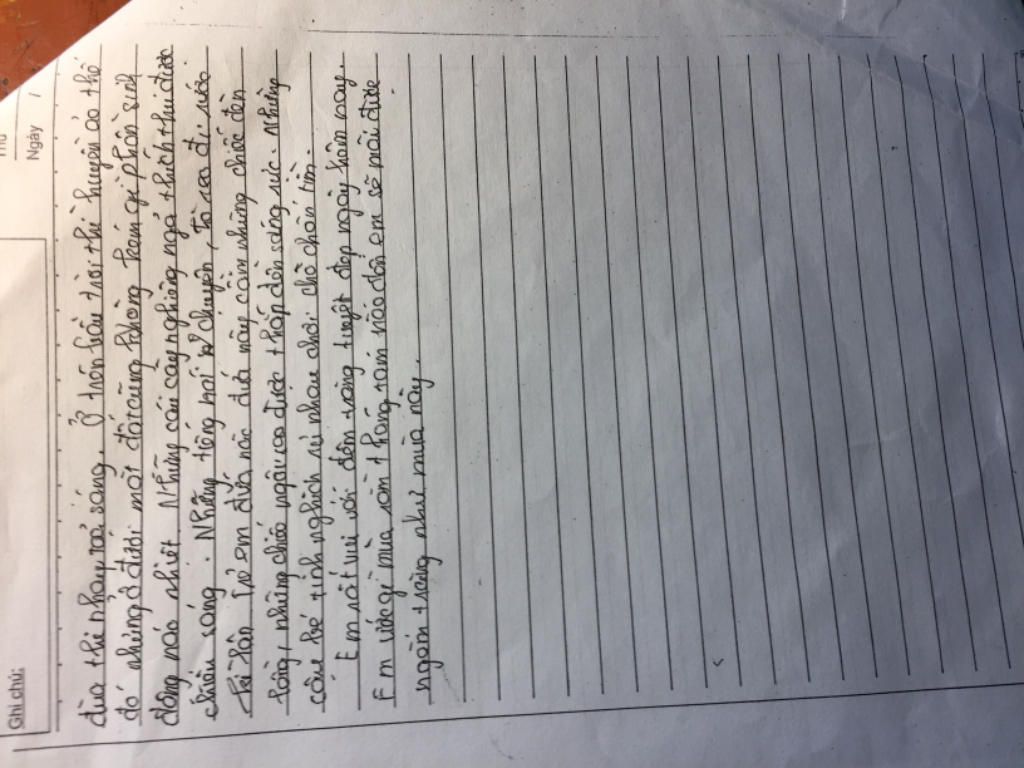 Thứ
Ngày /
Ghi chú:
đùa thi nhau toả sáng. Ở trên bầu trời thì huyền ảo thế
đó nhưng ở dưới mặt đất cũng không kém gì phần sinh
động náo nhiệt. Những cái cây nghiêng ngả thích thú được
chiếu sáng. Những tiếng nói trò chuyện, từ ca đi rước.
Trẻ em đứa nào đứa nấy cầm những chiếc đèn
lồng, những chiếc ngôi sao được thắp đèn sáng rực. Những
câu bé tinh nghịch rủ nhau chơi chỗ chán tìm.
Em rất vui với đêm trăng tuyệt đẹp ngày hôm nay.
Em ước gì mùa rằm tháng tám nào đến em sẽ mãi được
ngắm trăng như mùa này.